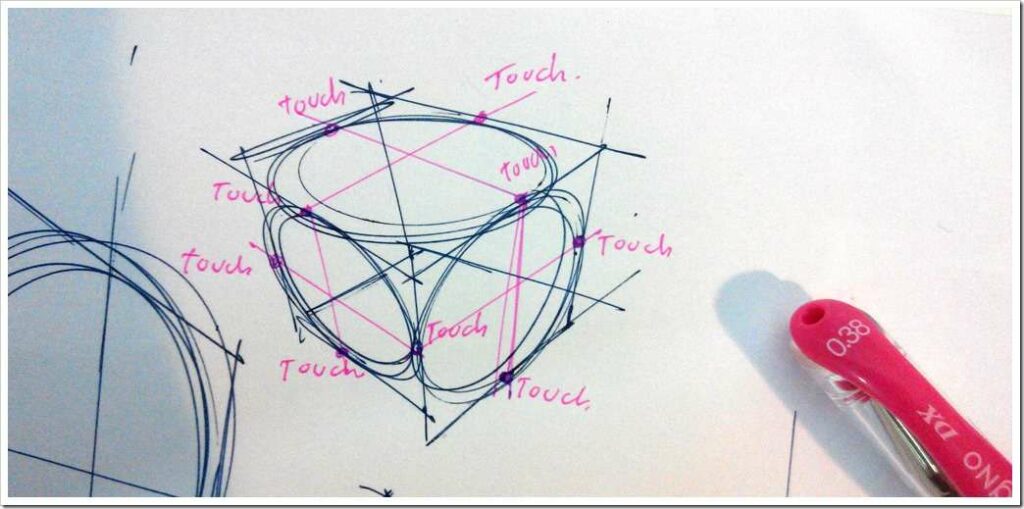 Touch.
Touch
Touch,
Touch
Touch
Touch
Touch
Touch
Touch.
0.38
DX
GNO